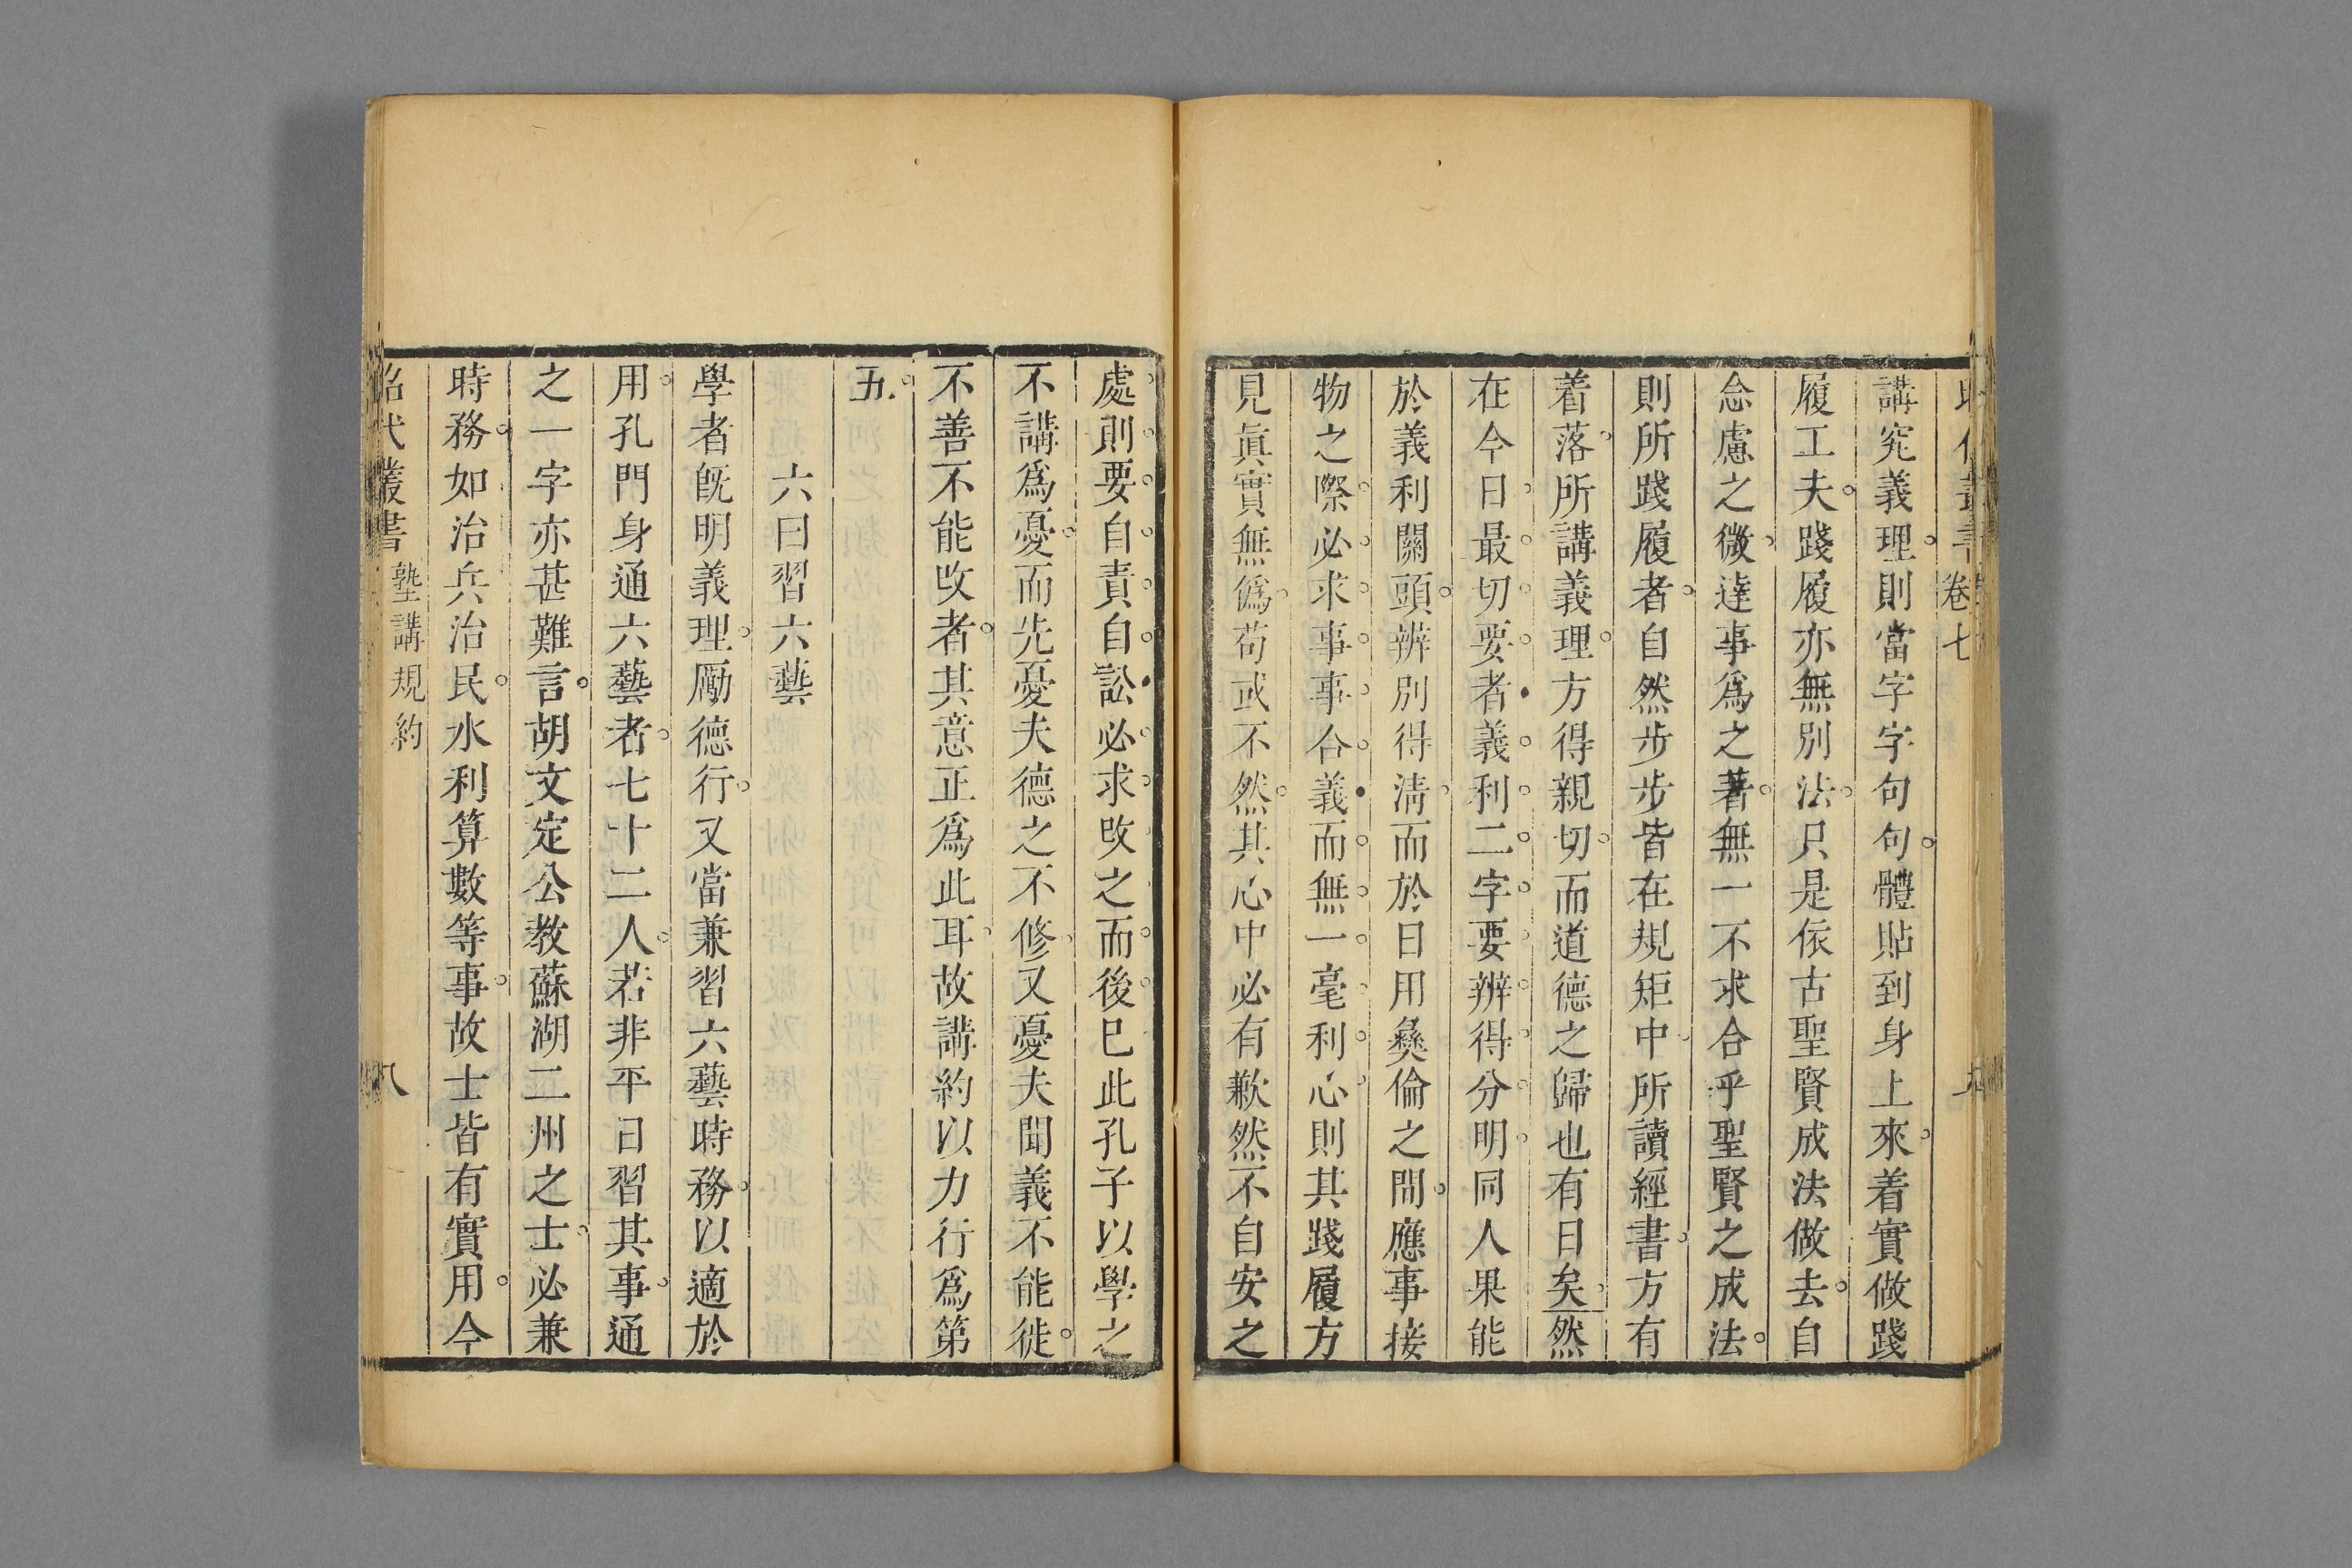 卷七
講究義理則當字字句句體貼到身上來着實做踐
履工夫踐履亦無別法只是依古聖賢成法做去自
念慮之微達事爲之著無一不求合乎聖賢之成法
則所踐履者自然步步皆在規矩中所讀經書方有
着落所講義理方得親切而道德之歸也有日矣然
在今日最切要者義利二字要辨得分明同人果能
於義利關頭辨別得淸而於日用彝倫之間應事接
物之際必求事事合義而無一毫利心則其踐履方
見眞實無僞苟或不然其心中必有歉然不自安之
處則要自責自訟必求改之而後已此孔子以學之
不講爲憂而先憂夫德之不修又憂夫聞義不能徙
不善不能改者其意正爲此耳故講約以力行爲第
五
六曰習六藝
學者旣明義理勵德行又當兼習六藝時務以適於
用孔門身通六藝者七十二人若非平日習其事通
之一字亦甚難言胡文定公教蘇湖二州之士必兼
時務如治兵治民水利算數等事故士皆有實用今
昭代叢書 塾講規約 八